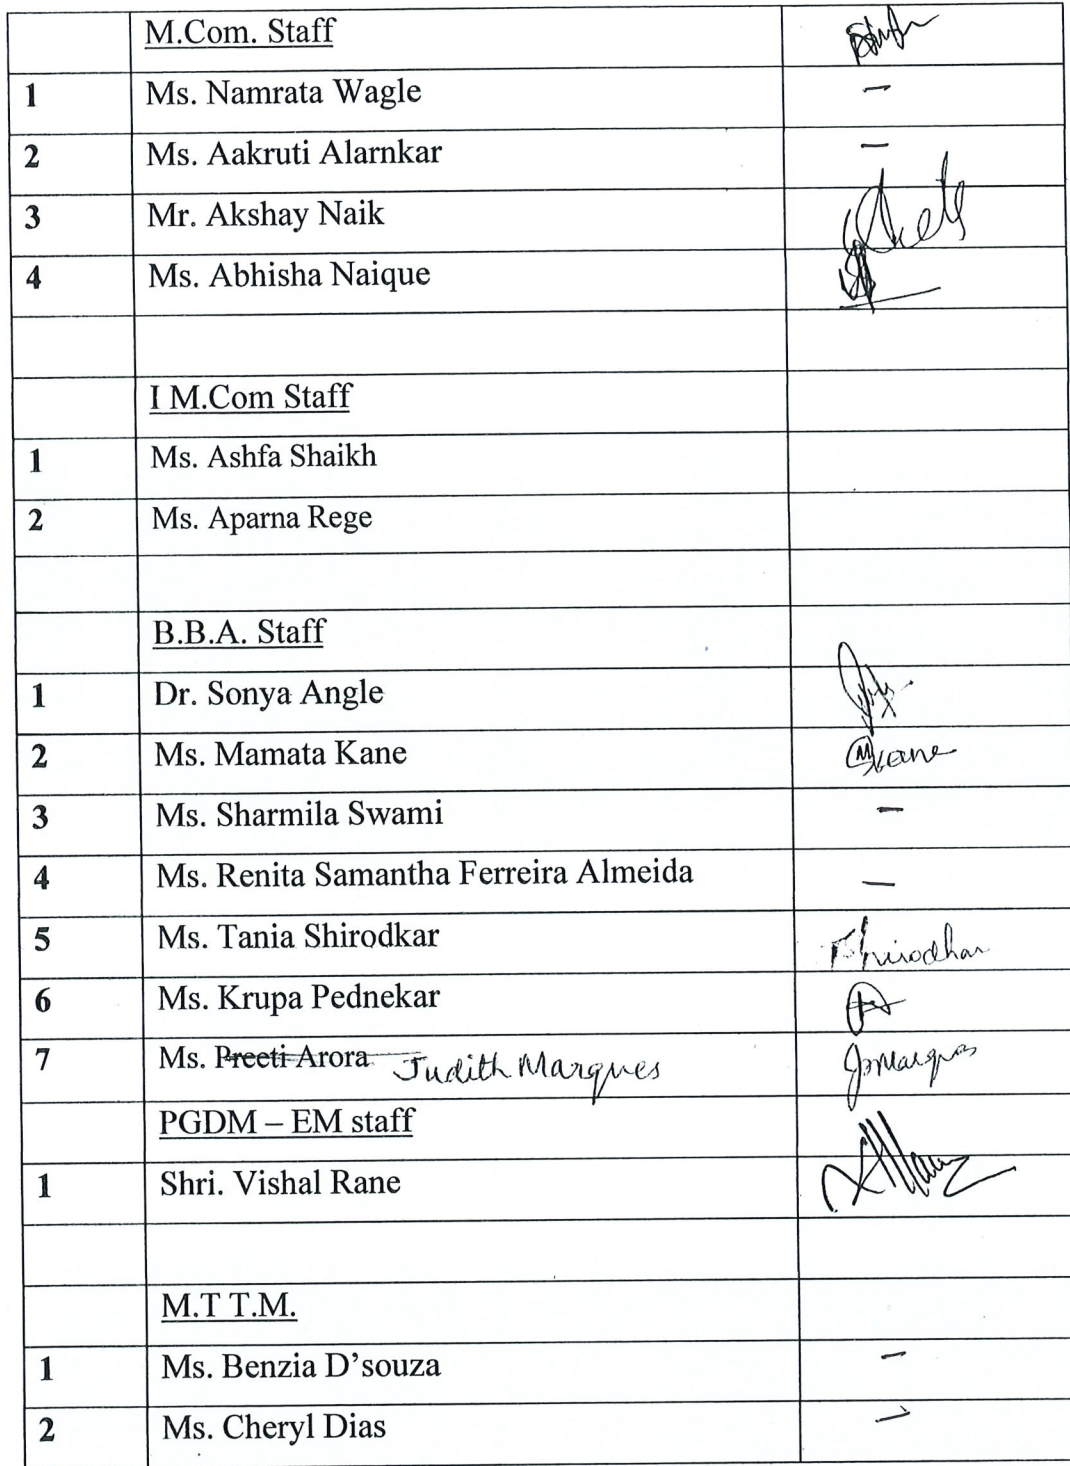 M.Com. Staff
1 Ms. Namrata Wagle –
2 Ms. Aakruti Alarnkar –
3 Mr. Akshay Naik
4 Ms. Abhisha Naique
I M.Com Staff
1 Ms. Ashfa Shaikh
2 Ms. Aparna Rege
B.B.A. Staff
1 Dr. Sonya Angle
2 Ms. Mamata Kane MKane
3 Ms. Sharmila Swami –
4 Ms. Renita Samantha Ferreira Almeida –
5 Ms. Tania Shirodkar
6 Ms. Krupa Pednekar
7 Ms. Preeti Arora Judith Marques
PGDM – EM staff
1 Shri. Vishal Rane
M.T T.M.
1 Ms. Benzia D'souza –
2 Ms. Cheryl Dias –